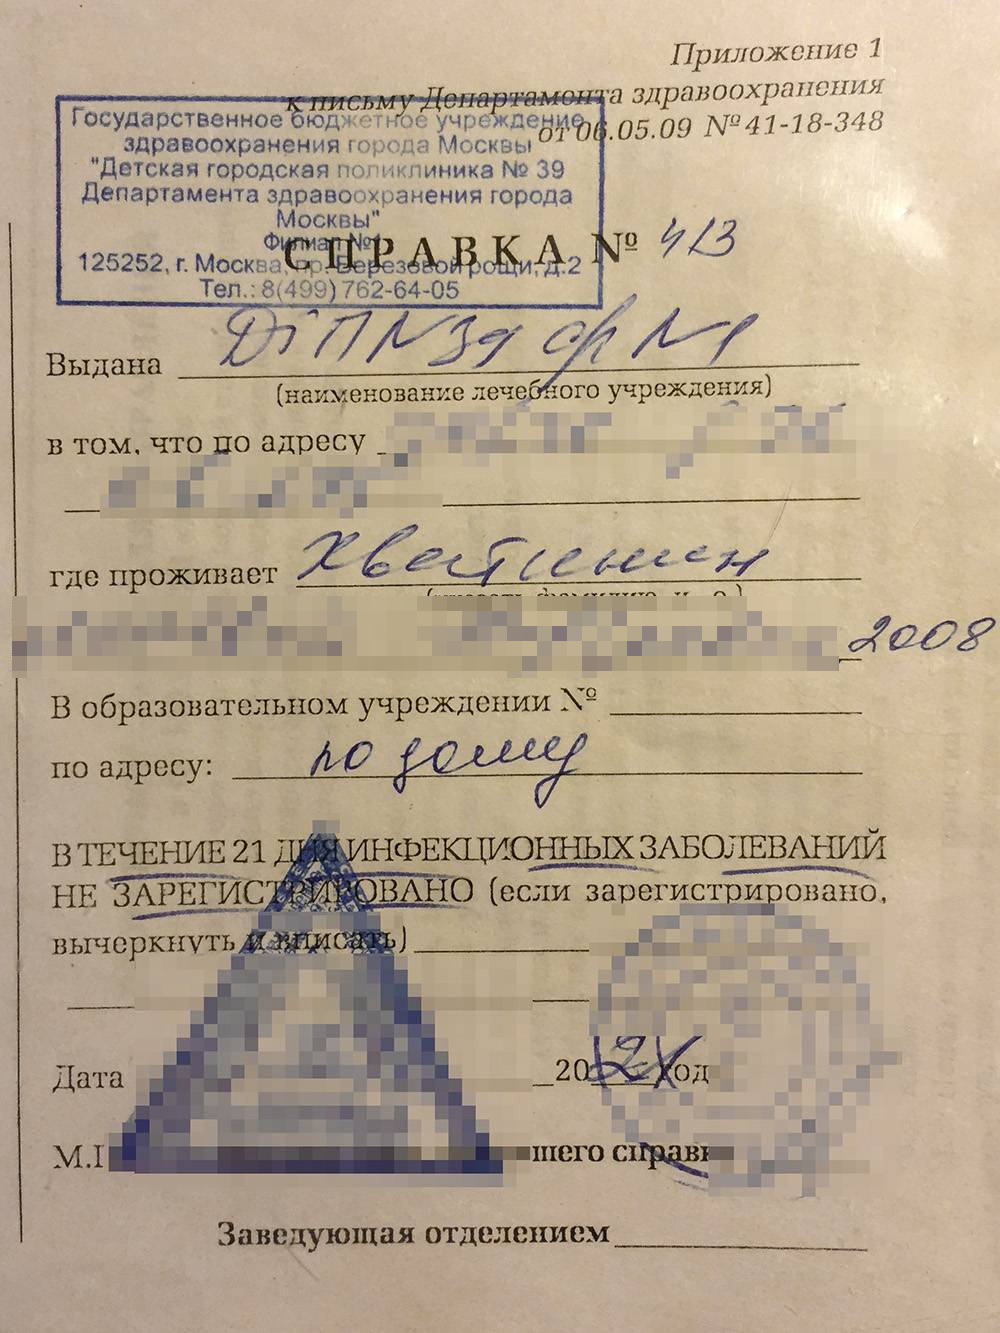 Приложение 1
к письму Департамента здравоохранения
от 06.05.09 № 41-18-348
Государственное бюджетное учреждение
здравоохранения города Москвы
"Детская городская поликлиника № 39
Департамента здравоохранения города
Москвы"
Филиал №1
125252, г. Москва, пр. Березовой рощи, д.2
Тел.: 8(499) 762-64-05
СПРАВКА № 413
Выдана ДГП N39 ф N1
(наименование лечебного учреждения)
в том, что по адресу
где проживает
2008
В образовательном учреждении №
по адресу: по дому
В ТЕЧЕНИЕ 21 ДНЯ ИНФЕКЦИОННЫХ ЗАБОЛЕВАНИЙ
НЕ ЗАРЕГИСТРИРОВАНО (если зарегистрировано,
вычеркнуть и вписать)
Дата 20
справк
Заведующая отделением